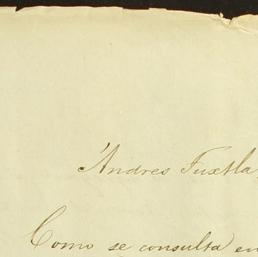 Andres Tuxtla,
Como se consulta en